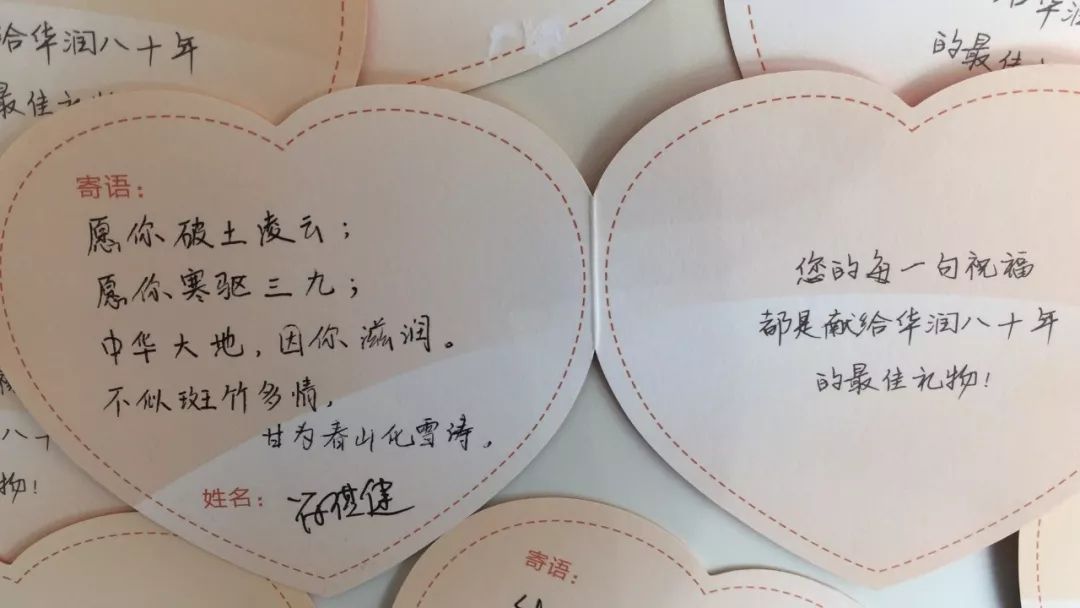 给华润八十年
最佳礼物
的最佳
寄语：
愿你破土凌云；
愿你寒驱三九；
中华大地，因你滋润。
不似斑竹多情，
甘为春山化雪涛。
姓名：
您的每一句祝福
都是献给华润八十年
的最佳礼物！
八十
物！
寄语：